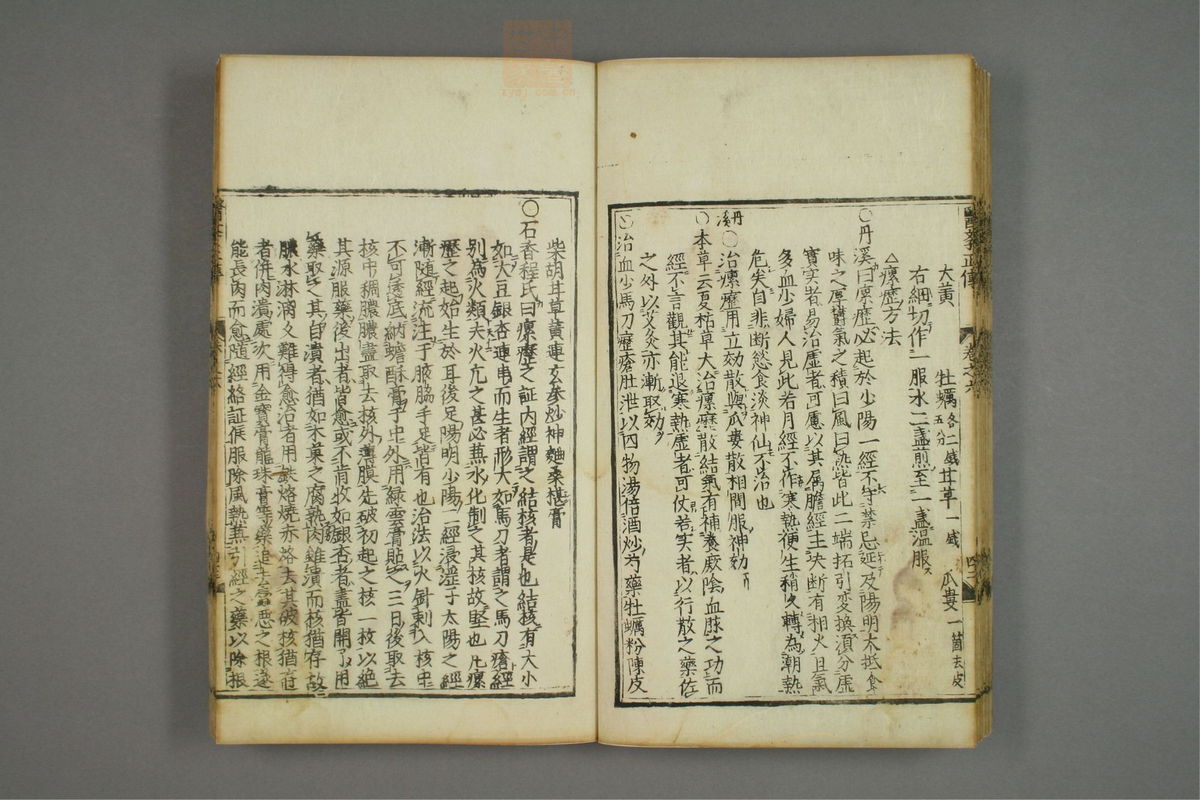 大黄 牡蠣各二戔五分 甘草一戔 瓜蔞一箇去皮
右細切作一服水二盞煎至一盞温服
△瘰癧方法
○丹溪曰瘰癧必起於少陽一經不守禁忌延及陽明大抵食
味之厚鬱氣之積曰風曰熱皆此二端拓引変換須分虚
實實者易治虚者可慮以其属膽經主决断有相火且氣
多血少婦人見此若月經不作寒熱便生稍久轉為潮熱
危矣自非断慾食淡神仙不治也
丹溪○治瘰癧用立効散與瓜蔞散相間服神効
○本草云夏枯草大治瘰癧散結氣有補養厥陰血脉之功而
經不言觀其能退寒熱虚者可仗若实者以行散之藥佐
之外以艾灸亦漸取効
○治血少馬刀癧瘡肚泄以四物湯倍酒炒芍藥牡蠣粉陳皮
柴胡甘草黄連玄参炒神麯桑椹膏
○石香程氏曰瘰癧之証内經謂之結核者是也結核有大小
如大豆銀杏連串而生者形大如馬刀者謂之馬刀瘡經
别為火類夫火亢之甚必兼水化制之其核故堅也凢瘰
癧之起始生於耳後足陽明少陽二經浸淫于太陽之經
漸随經流注于腋脇手足皆有也治法以火針刺入核中
不可透底納蟾酥膏于中外用緑雲膏貼之三日後取去
核中稠膿膿盡取去核外薄膜先破初起之核一枚以絶
其源服藥後出者皆愈或不肯收如銀杏者盡皆開了用
藥取之其自潰者猶如木菓之腐熟肉雖潰而核猶存故
膿水淋漓久難得愈治者用鉄烙燒赤烙去其破核猶豈
者併肉潰處次用金寶膏龍珠膏等藥追去蓄惡之根遂
能長肉而愈随經絡証候服除風熱兼引經之藥以除根